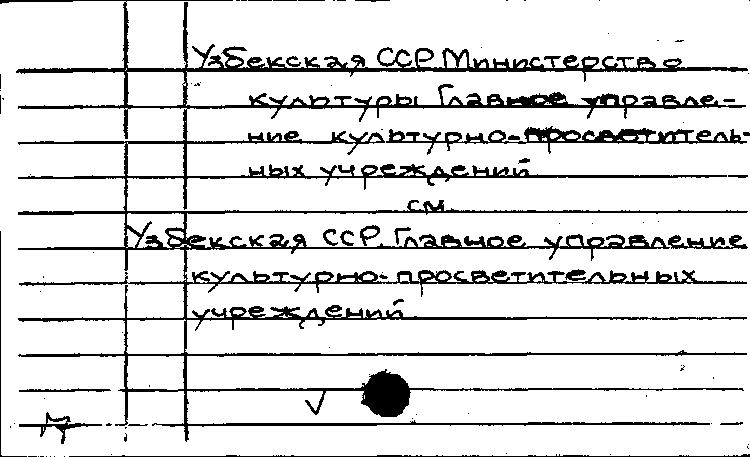 Узбекская ССР. Министерство
культуры. Главное управле-
ние культурно-просветитель-
ных учреждений
см.
Узбекская ССР. Главное управление
культурно-просветительных
учреждений.